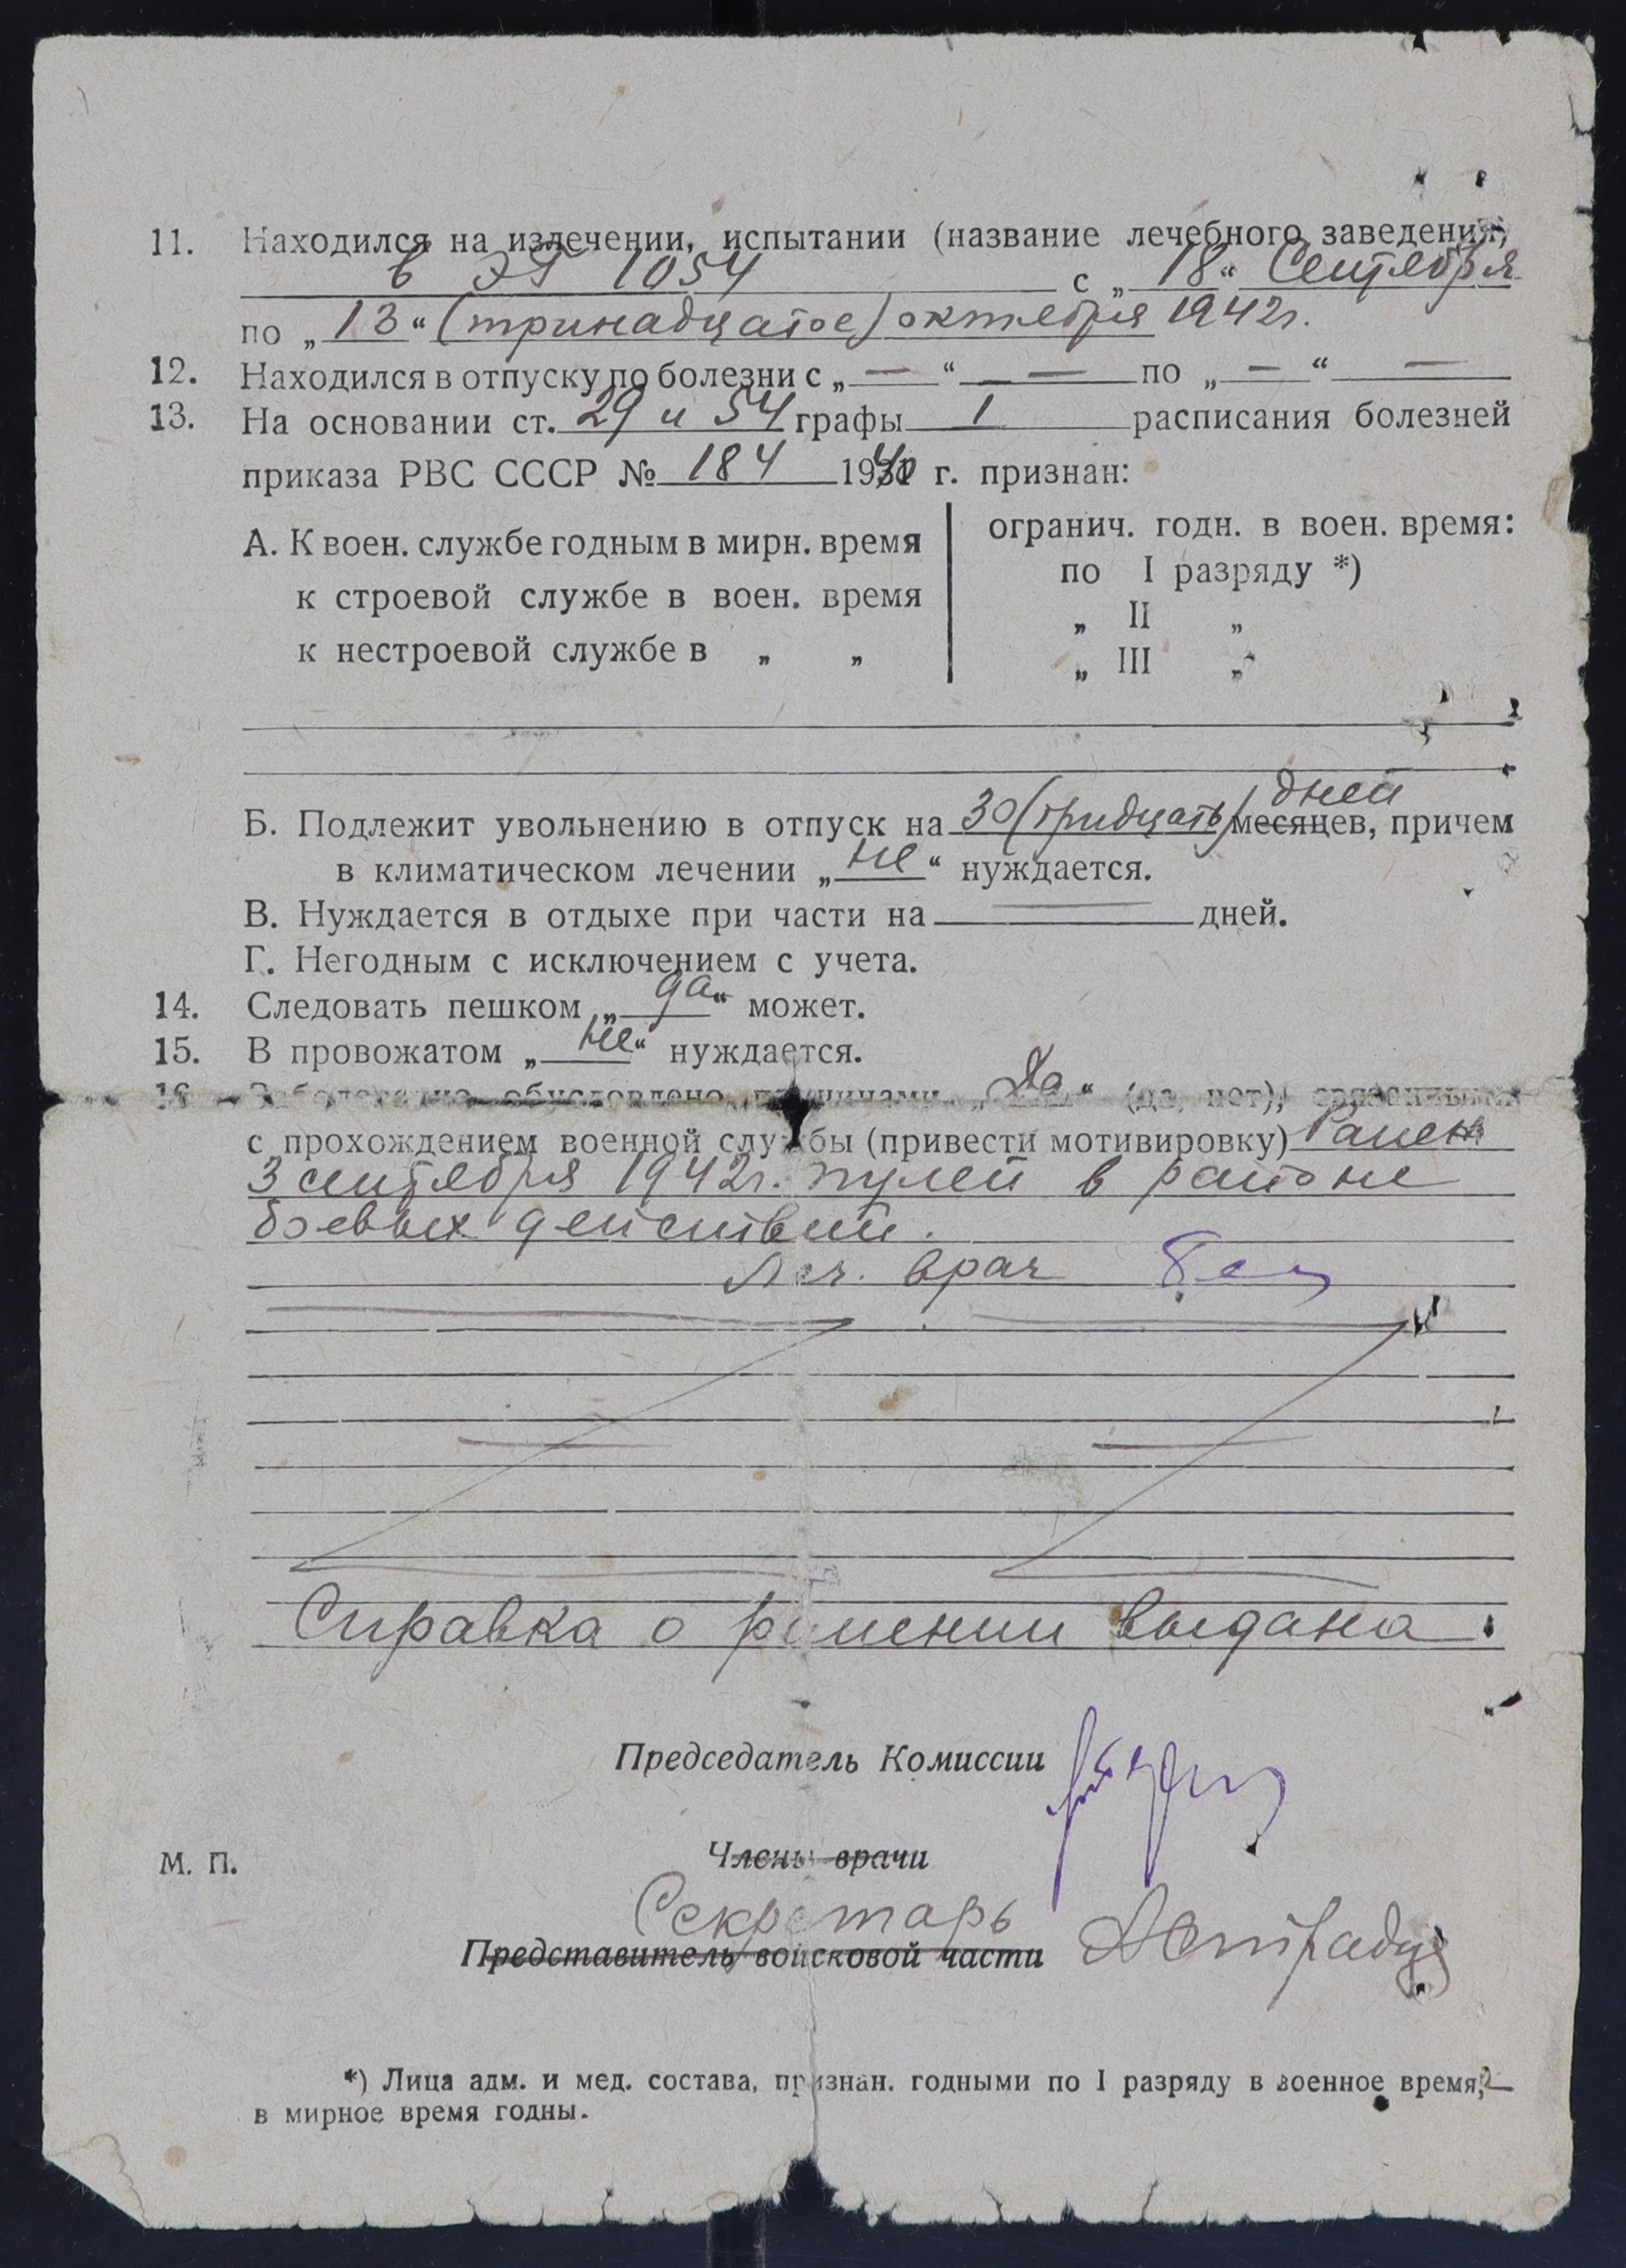 11. Находился на излечении, испытании (название лечебного заведения)
в ЭГ 1054 с „18“ Сентября
по „13“ (тринадцатое) октября 1942г.
12. Находился в отпуску по болезни с „—“ — по „—“ —
13. На основании ст. 29 и 54 графы 1 расписания болезней
приказа РВС СССР № 184 1940 г. признан:
А. К воен. службе годным в мирн. время
к строевой службе в воен. время
к нестроевой службе в „ „
огранич. годн. в воен. время:
по I разряду *)
„ II „
„ III „
Б. Подлежит увольнению в отпуск на 30 (тридцать) месяцев, дней причем
в климатическом лечении „не“ нуждается.
В. Нуждается в отдыхе при части на — дней.
Г. Негодным с исключением с учета.
14. Следовать пешком „да“ может.
15. В провожатом „не“ нуждается.
16. Заболевание обусловлено причинами „Да“ (да, нет), связанными
с прохождением военной службы (привести мотивировку) Ранен
3 сентября 1942г. пулей в районе
боевых действий.
Леч. врач
Справка о ранении выдана.
Председатель Комиссии
М. П.
Члены врачи
Секретарь
Представитель войсковой части
*) Лица адм. и мед. состава, признан. годными по I разряду в военное время,
в мирное время годны.